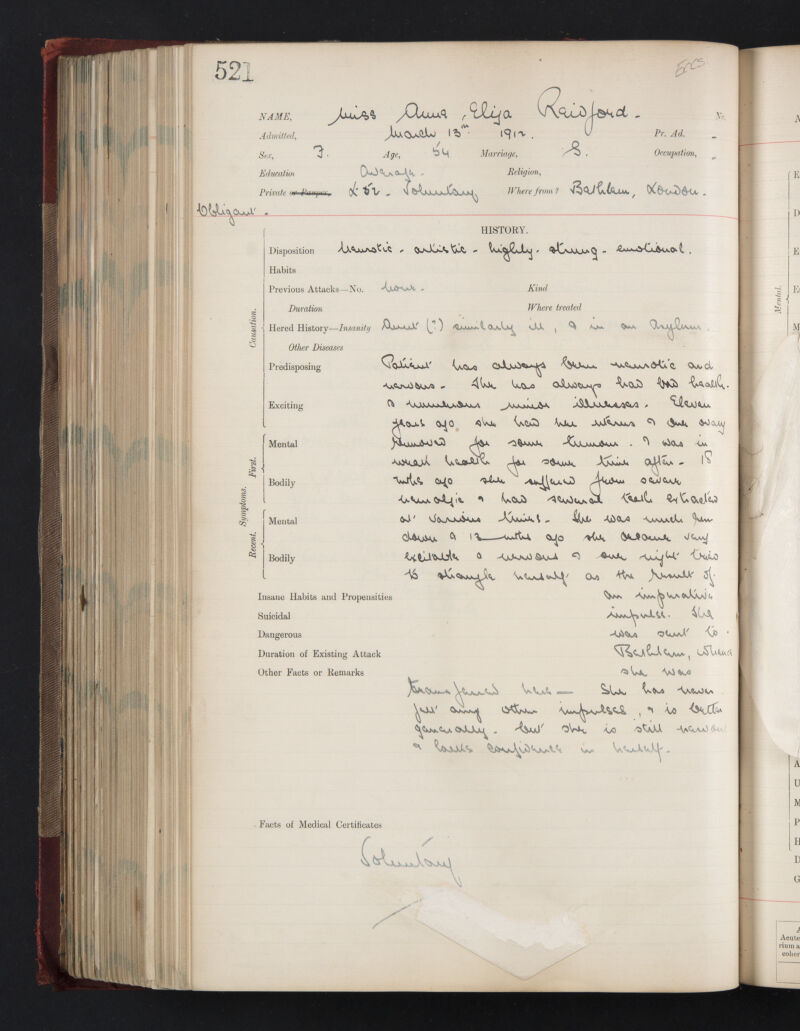 521
NAME, Miss Anna Eliza Reidford - No.
Admitted, March 13th 1912. Pr. Ad. -
Sex, F. Age, 54 Marriage, S. Occupation, -
Education Average. Religion,
Private or Pauper, £52. Voluntary Where from? Bethlem, London.
Obligant.
HISTORY.
Disposition Neurotic - artistic - highly-strung - emotional.
Habits
Previous Attacks—No. none. Kind
Duration Where treated
Hered History—Insanity Aunt (?) similarly ill, & in an Asylum.
Other Diseases
Causation.
Predisposing Patient has always been neurotic and
nervous. She has always had bad health.
Exciting & numerous minor illnesses. Eleven
years ago she had her uterus & one ovary
First. Mental removed for some tumour. & was in
weak health for some time after - 18
Bodily mths ago she suffered from severe
neuralgia & had several teeth extracted
Symptoms.
Recent. Mental at various times. She was much run
down & 13 mths ago she became very
Bodily excitable & nervous & one night tried
to strangle herself as the result of
Insane Habits and Propensities an imperative
Suicidal impulse. She
Dangerous was sent to
Duration of Existing Attack Bethlem, whence
Other Facts or Remarks she was
transferred here — She has never
felt any other impulses, & is better
generally. but she is still nervous
& lacks confidence in herself.
Facts of Medical Certificates
Voluntary
Mental.
Acute